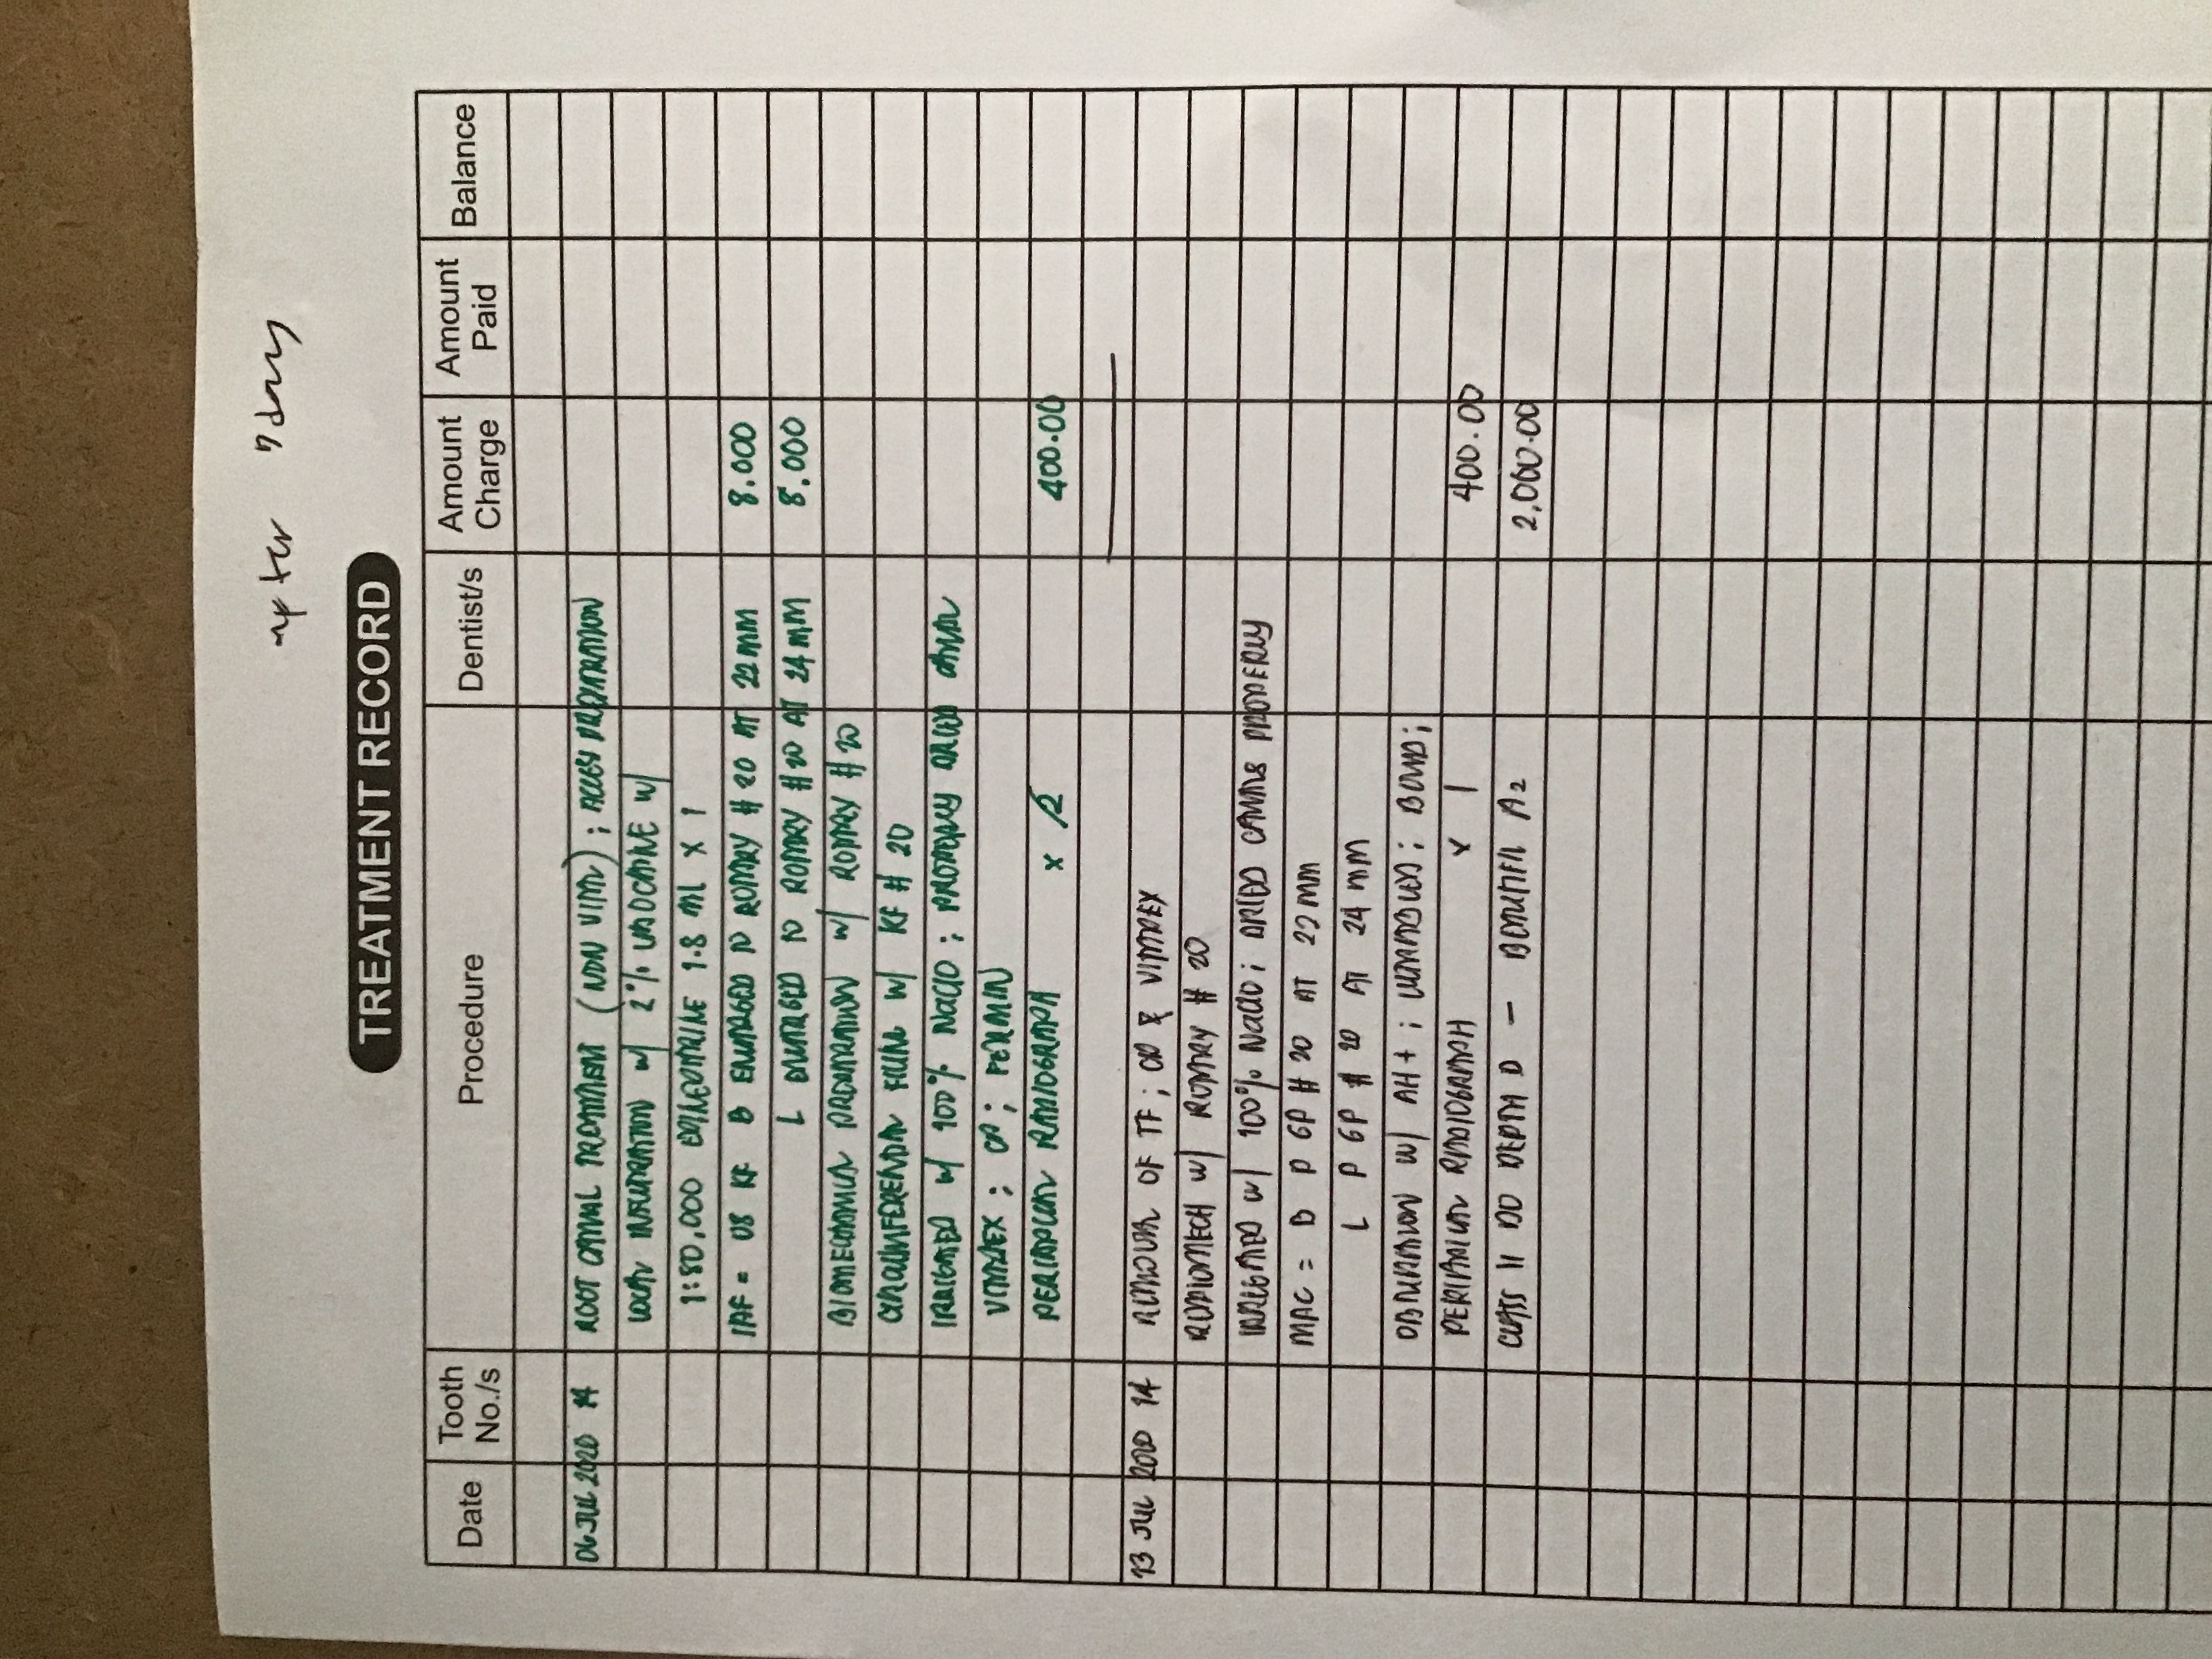 7 days
TREATMENT RECORD
Date Tooth No./s Procedure Dentist/s Amount Charge Amount Paid Balance
06 JUL 2020 14 ROOT CANAL TREATMENT (NON VITAL); ACCESS PREPARATION
LOCAL INFILTRATION w/ 2% LIDOCAINE w/
1:80,000 EPINEPHRINE 1.8 ml x 1
IAF = 08 KF B ENLARGED TO ROTARY # 20 AT 22 MM 8,000
L ENLARGED TO ROTARY # 20 AT 24 MM 8,000
BIOMECHANICAL PREPARATION w/ ROTARY # 20
CIRCUMFERENTIAL FILING w/ KF # 20
IRRIGATED w/ 100% NaClO; PROPERLY DRIED CANAL
VITAPEX; CP;
PERIAPICAL RADIOGRAPH x 2 400.00
13 JUL 2020 14 REMOVAL OF TF; CP & VITAPEX
w/ ROTARY # 20
IRRIGATED w/ 100% NaClO; DRIED CANALS PROPERLY
MAC = B P GP # 20 AT 22 MM
L P GP # 20 AT 24 MM
OBTURATION w/ AH+; BOND;
PERIAPICAL RADIOGRAPH x 1 400.00
CLASS II DO DEPTH D - A2 2,000.00